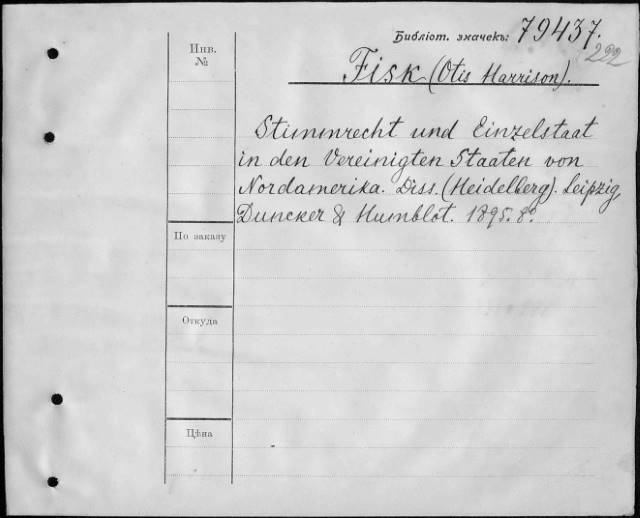 Библіот. значекъ: 79437.
222
Инв.
№
Fisk (Otis Harrison).
Stimmrecht und Einzelstaat
in den Vereinigten Staaten von
Nordamerika. Diss. (Heidelberg). Leipzig,
Duncker & Humblot. 1895. 8º.
По заказу
Откуда
Цѣна